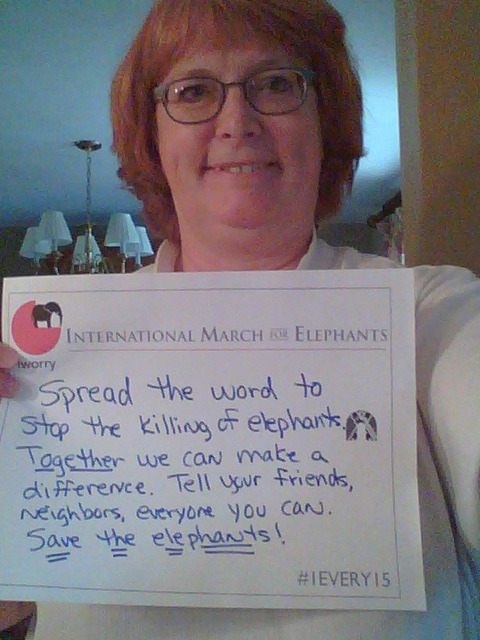 iworry
INTERNATIONAL MARCH FOR ELEPHANTS
Spread the word to
stop the killing of elephants
Together we can make a
difference. Tell your friends,
neighbors, everyone you can.
Save the elephants!
#1EVERY15